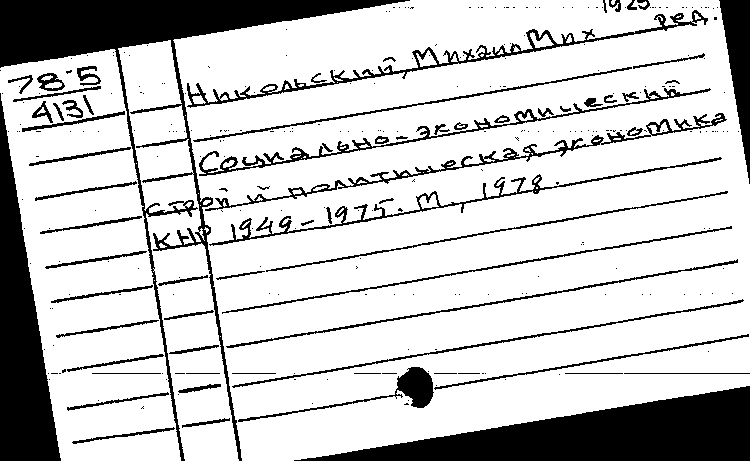 1925
78-5
4131
Никольский, Михаил Мих ред.
Социально-экономический
строй и политическая экономика
КНР 1949-1975. М., 1978.